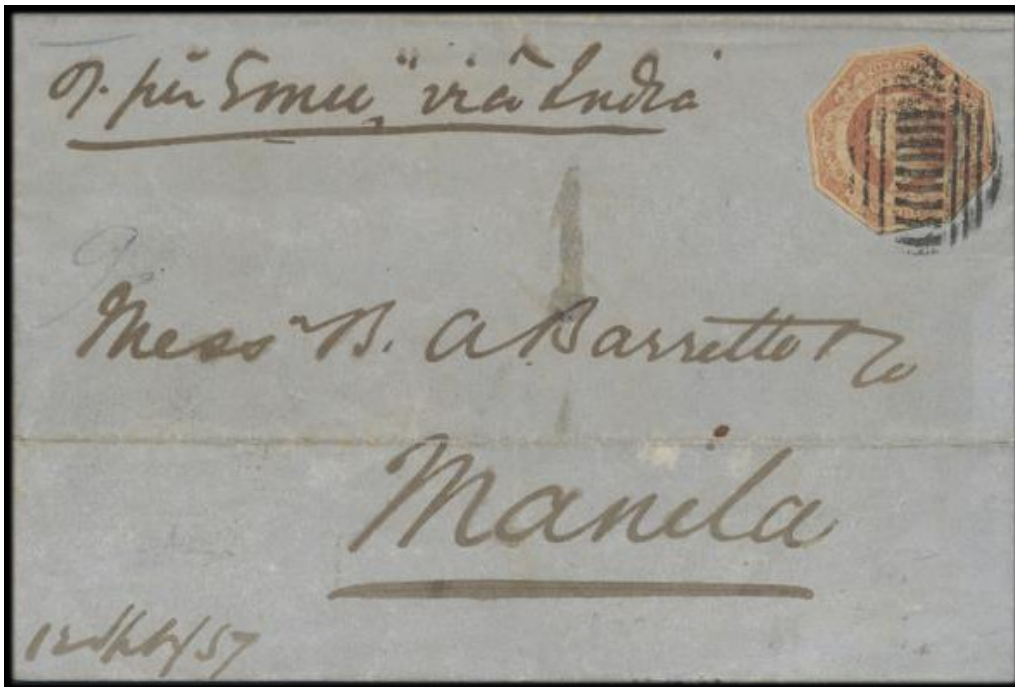 per Emeu" viâ India
Mess^rs B. A Barretto & Co
Manila
12 /57